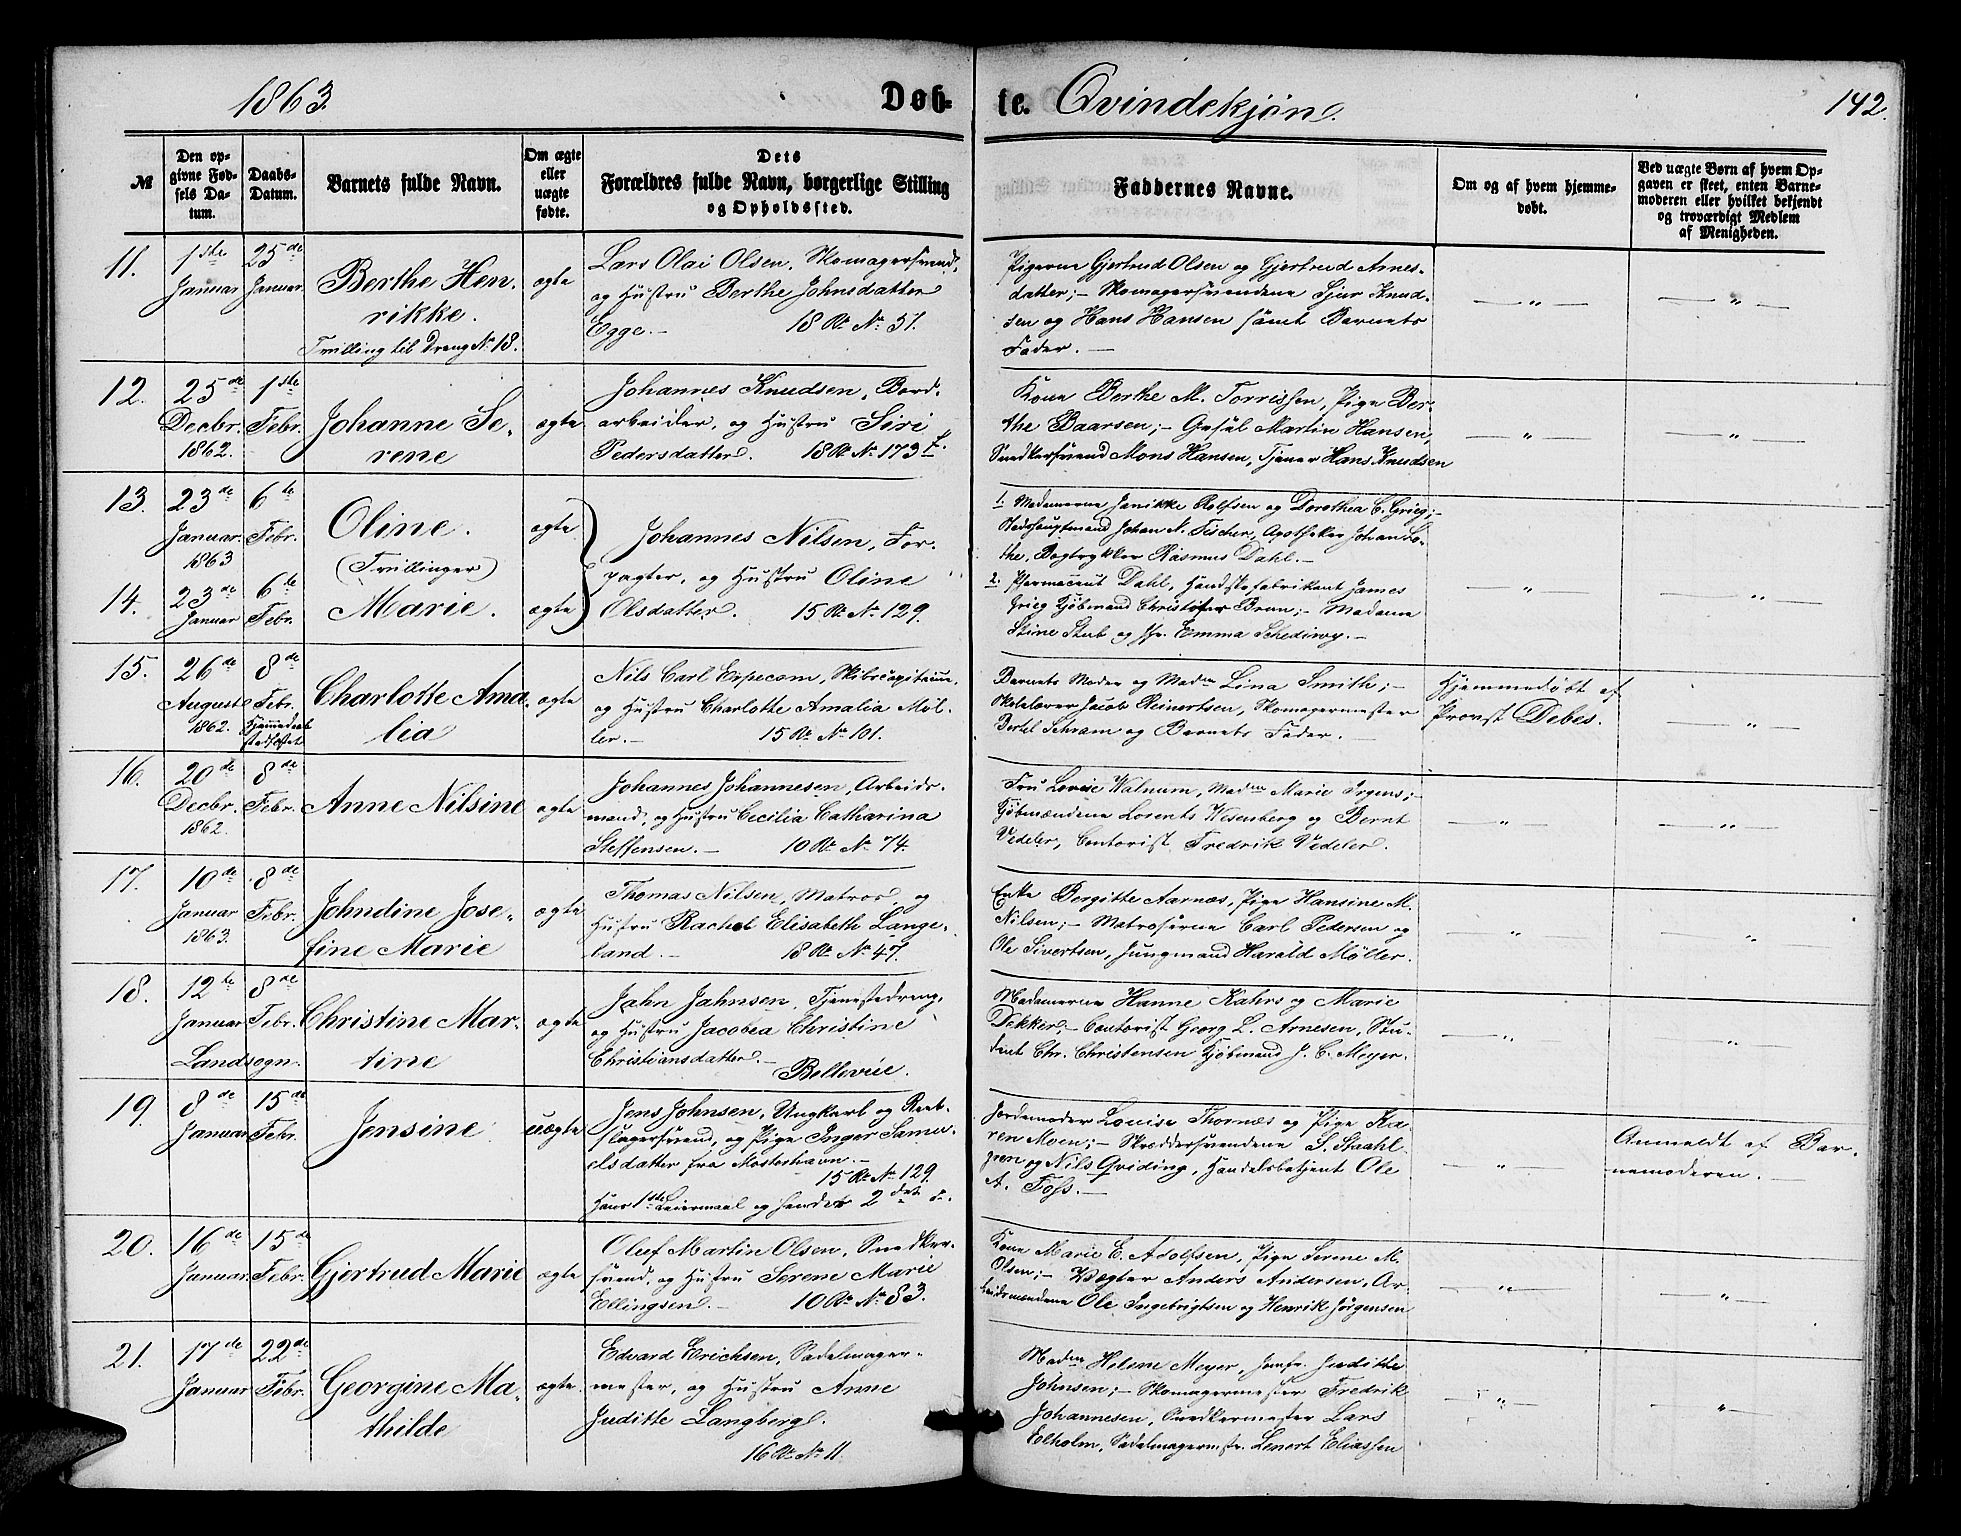 1863.
Døb-
te. Qvindekjøn.
142.
№
Den op-
givne Fød-
sels Da-
tum.
Daabs-
Datum.
Barnets fulde Navn.
Om ægte
eller
uægte
fødte.
Dets
Forældres fulde Navn, borgerlige Stilling
og Opholdssted.
Faddernes Navne.
Om og af hvem hjemme-
døbt.
Ved uægte Børn af hvem Op-
gaven er skeet, enten Barne-
moderen eller hvilket bekjendt
og troværdigt Medlem
af Menigheden.
11.
1ste
Januar
25de
Januar.
Berthe Hen-
rikke.
Tvilling til Dreng No 18.
ægte
Lars Olai Olsen, Skomagersvend,
og Hustru Berthe Johnsdatter
Egge.- 18 R. No 51.
Pigerne Gjertrud Olsen og Gjertrud Arnes-
datter;- Skomagersvendene Sjur Knud-
sen og Hans Hansen samt Barnets
Fader.-
— " —
— " —
12.
25de
Decbr.
1862.
1ste
Febr.
Johanne Se-
rene
ægte
Johannes Knudsen, Bord-
arbeider, og Hustru Siri
Pedersdatter. 18 R. No 173
Kone Berthe M. Torrissen, Pige Ber-
the Baarsen;- Martin Hansen,
Snedkersvend Mons Hansen, Tjener Hans Knudsen
— " —
— " —
13.
23de
Januar.
1863
6te
Febr.
Oline.
(Tvillinger)
ægte
Johannes Nilsen, For-
pagter, og Hustru Oline
Olsdatter. 15 R. No 129.
1. Madamerne Janikke Rolfsen og Dorothea C. Grieg;-
Johan N. Fischer, Apotheker Johan Lo-
the, Bogtrykker Rasmus Dahl.-
14.
23de
Januar
6te
Febr.
Marie.
ægte
2. Pharmaceut Dahl, fabrikant James
Grieg Kjøbmand Christopher Brun;- Madame
Stine Stub og Emma Schediwy.-
— " —
— " —
15.
26de
August
1862.
8de
Febr.
Hjemmedaab
stadfæstet
Charlotte Ama-
lia
ægte
Nils Carl Especom, Skibscapitaine,
og Hustru Charlotte Amalia Møl-
ler.- 15 R. No 101.
Barnets Moder og Madm Lina Smith;-
Skolelærer Jacob Reinertsen, Skomagermester
Bertel Schram og Barnets Fader.-
Hjemmedøbt af
Provst Debes.
— " —
16.
20de
Decbr.
1862.
8de
Febr.
Anne Nilsine
ægte
Johannes Johannesen, Arbeids-
mand, og Hustru Cecilia Catharina
Steffensen.- 10 R. No 74.
Fru Lovise Walnum, Madm Marie Irgens;-
Kjøbmændene Lorents Wesenberg og Bernt
Vedeler, Contorist Fredrik Vedeler.
— " —
— " —
17.
10de
Januar
1863.
8de
Febr.
Johndine Jose-
fine Marie
ægte
Thomas Nilsen, Matros, og
Hustru Rachel Elisabeth Lange-
land.- 18 R. No 47.
Enke Bergitte Aarnæs, Pige Hansine M.
Nilsen;- Matroserne Carl Pedersen og
Ole Sivertsen, Jungmand Harald Møller.
"
— " —
18.
12te
Januar
8de
Febr.
Landsogn.
Christine Mar-
tine
ægte
Jahn Jahnsen, Tjenestedreng,
og Hustru Jacobea Christine
Christiansdatter.-
Bellevüe.
Madamerne Hanne Kahrs og Marie
Dekker,- Contorist Georg L. Arnesen, Stu-
dent Chr. Christensen Kjøbmand J. C. Meyer.
— " —
— " —
19.
8de
Januar
15de
Febr.
Jensine
uægte
Jens Johnsen, Ungkarl og Reeb-
slagersvend, og Pige Inger Samu-
elsdatter fra Mosterhavn.-
15 R. No 129.
Hans 1ste Leiermaal og hendes 2det
Jordemoder Louise Thornæs og Pige Ka-
ren Moen;- Skræddersvendene S. Staahl-
og Nils Qviding, Handelsbetjent Ole
A. Foss.-
— " —
Anmeldt af Bar-
nemoderen.-
20.
16de
Januar.
15de
Febr.
Gjertrud Marie
ægte
Oluf Martin Olsen, Snedker-
svend, og Hustru Serene Marie
Ellingsen.- 10 R. No 83.
Kone Marie E. Adolfsen, Pige Serine M.
Olsen;- Vægter Anders Andersen, Ar-
beidsmændene Ole Ingebrigtsen og Henrik Jørgensen
— " —
"
21.
17de
Januar
22de
Febr.
Georgine Ma-
thilde
ægte.
Edvard Erichsen, Sadelmager-
mester, og Hustru Anne
Juditte Langberg.
16 R. No 11.
Madm Helene Meyer, Jomfr. Juditte
Johnsen;- Skomagermester Fredrik
Johannesen, Snedkermester Lars
Eelholm, Sadelmagermstr. Lenert Eliassen
— " —
— " —